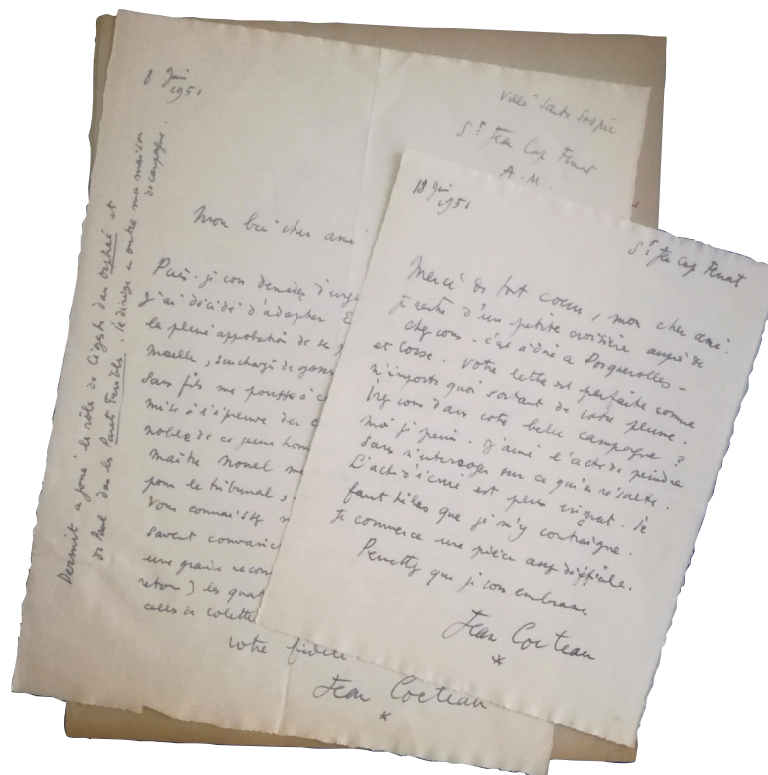 8 Juin
1951
Villa Santo Sospir
St Jean Cap Ferrat
A. M.
Mon bien cher ami
Puis-je vous demander d'urge
J'ai décidé d'adopter
la pleine approbation de
maille, surchargé de
sans fils me pousse à
mise à l'épreuve des
noblesse de ce jeune hom
maître
pour le tribunal,
Vous connaissez
savent convainc
une grande recon
retour) les quat
celles de Colette
votre fidèle
Jean Cocteau
*
Dermit a joué les rôles de Cégeste dans Orphée et
de Paul dans les Enfants Terribles. Il dirige en outre ma maison
de campagne.
18 Juin
1951
St Jean Cap Ferrat
Merci de tout coeur, mon cher ami.
Je rentre d'une petite croisière auprès de
chez vous - c'est à dire à Porquerolles -
et Corse. Votre lettre est parfaite comme
n'importe quoi sortant de votre plume.
Irez vous dans votre belle campagne ?
moi je peins. J'aime l'acte de peindre
sans m'interroger sur ce qui en résulte.
L'acte d'écrire est plus ingrat. Il
faut hélas que je m'y contraigne.
Je commence une pièce assez difficile.
Permettez que je vous embrasse
Jean Cocteau
*